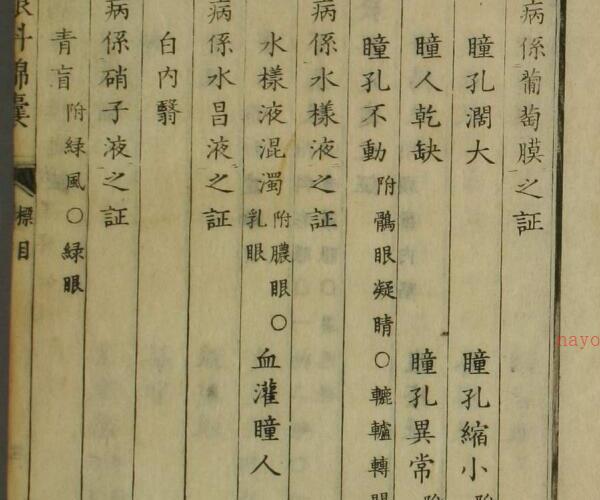 病係葡萄膜之証
瞳孔濶大 瞳孔縮小
瞳人乾缺 瞳孔異常
瞳孔不動 附鶻眼凝睛〇轆轤轉
病係水樣液之証
水樣液混濁 附膿眼〇乳眼 血灌瞳人
病係水晶液之証
白内翳
病係硝子液之証
青盲 附緑風〇緑眼
眼科錦囊 標目
nayo